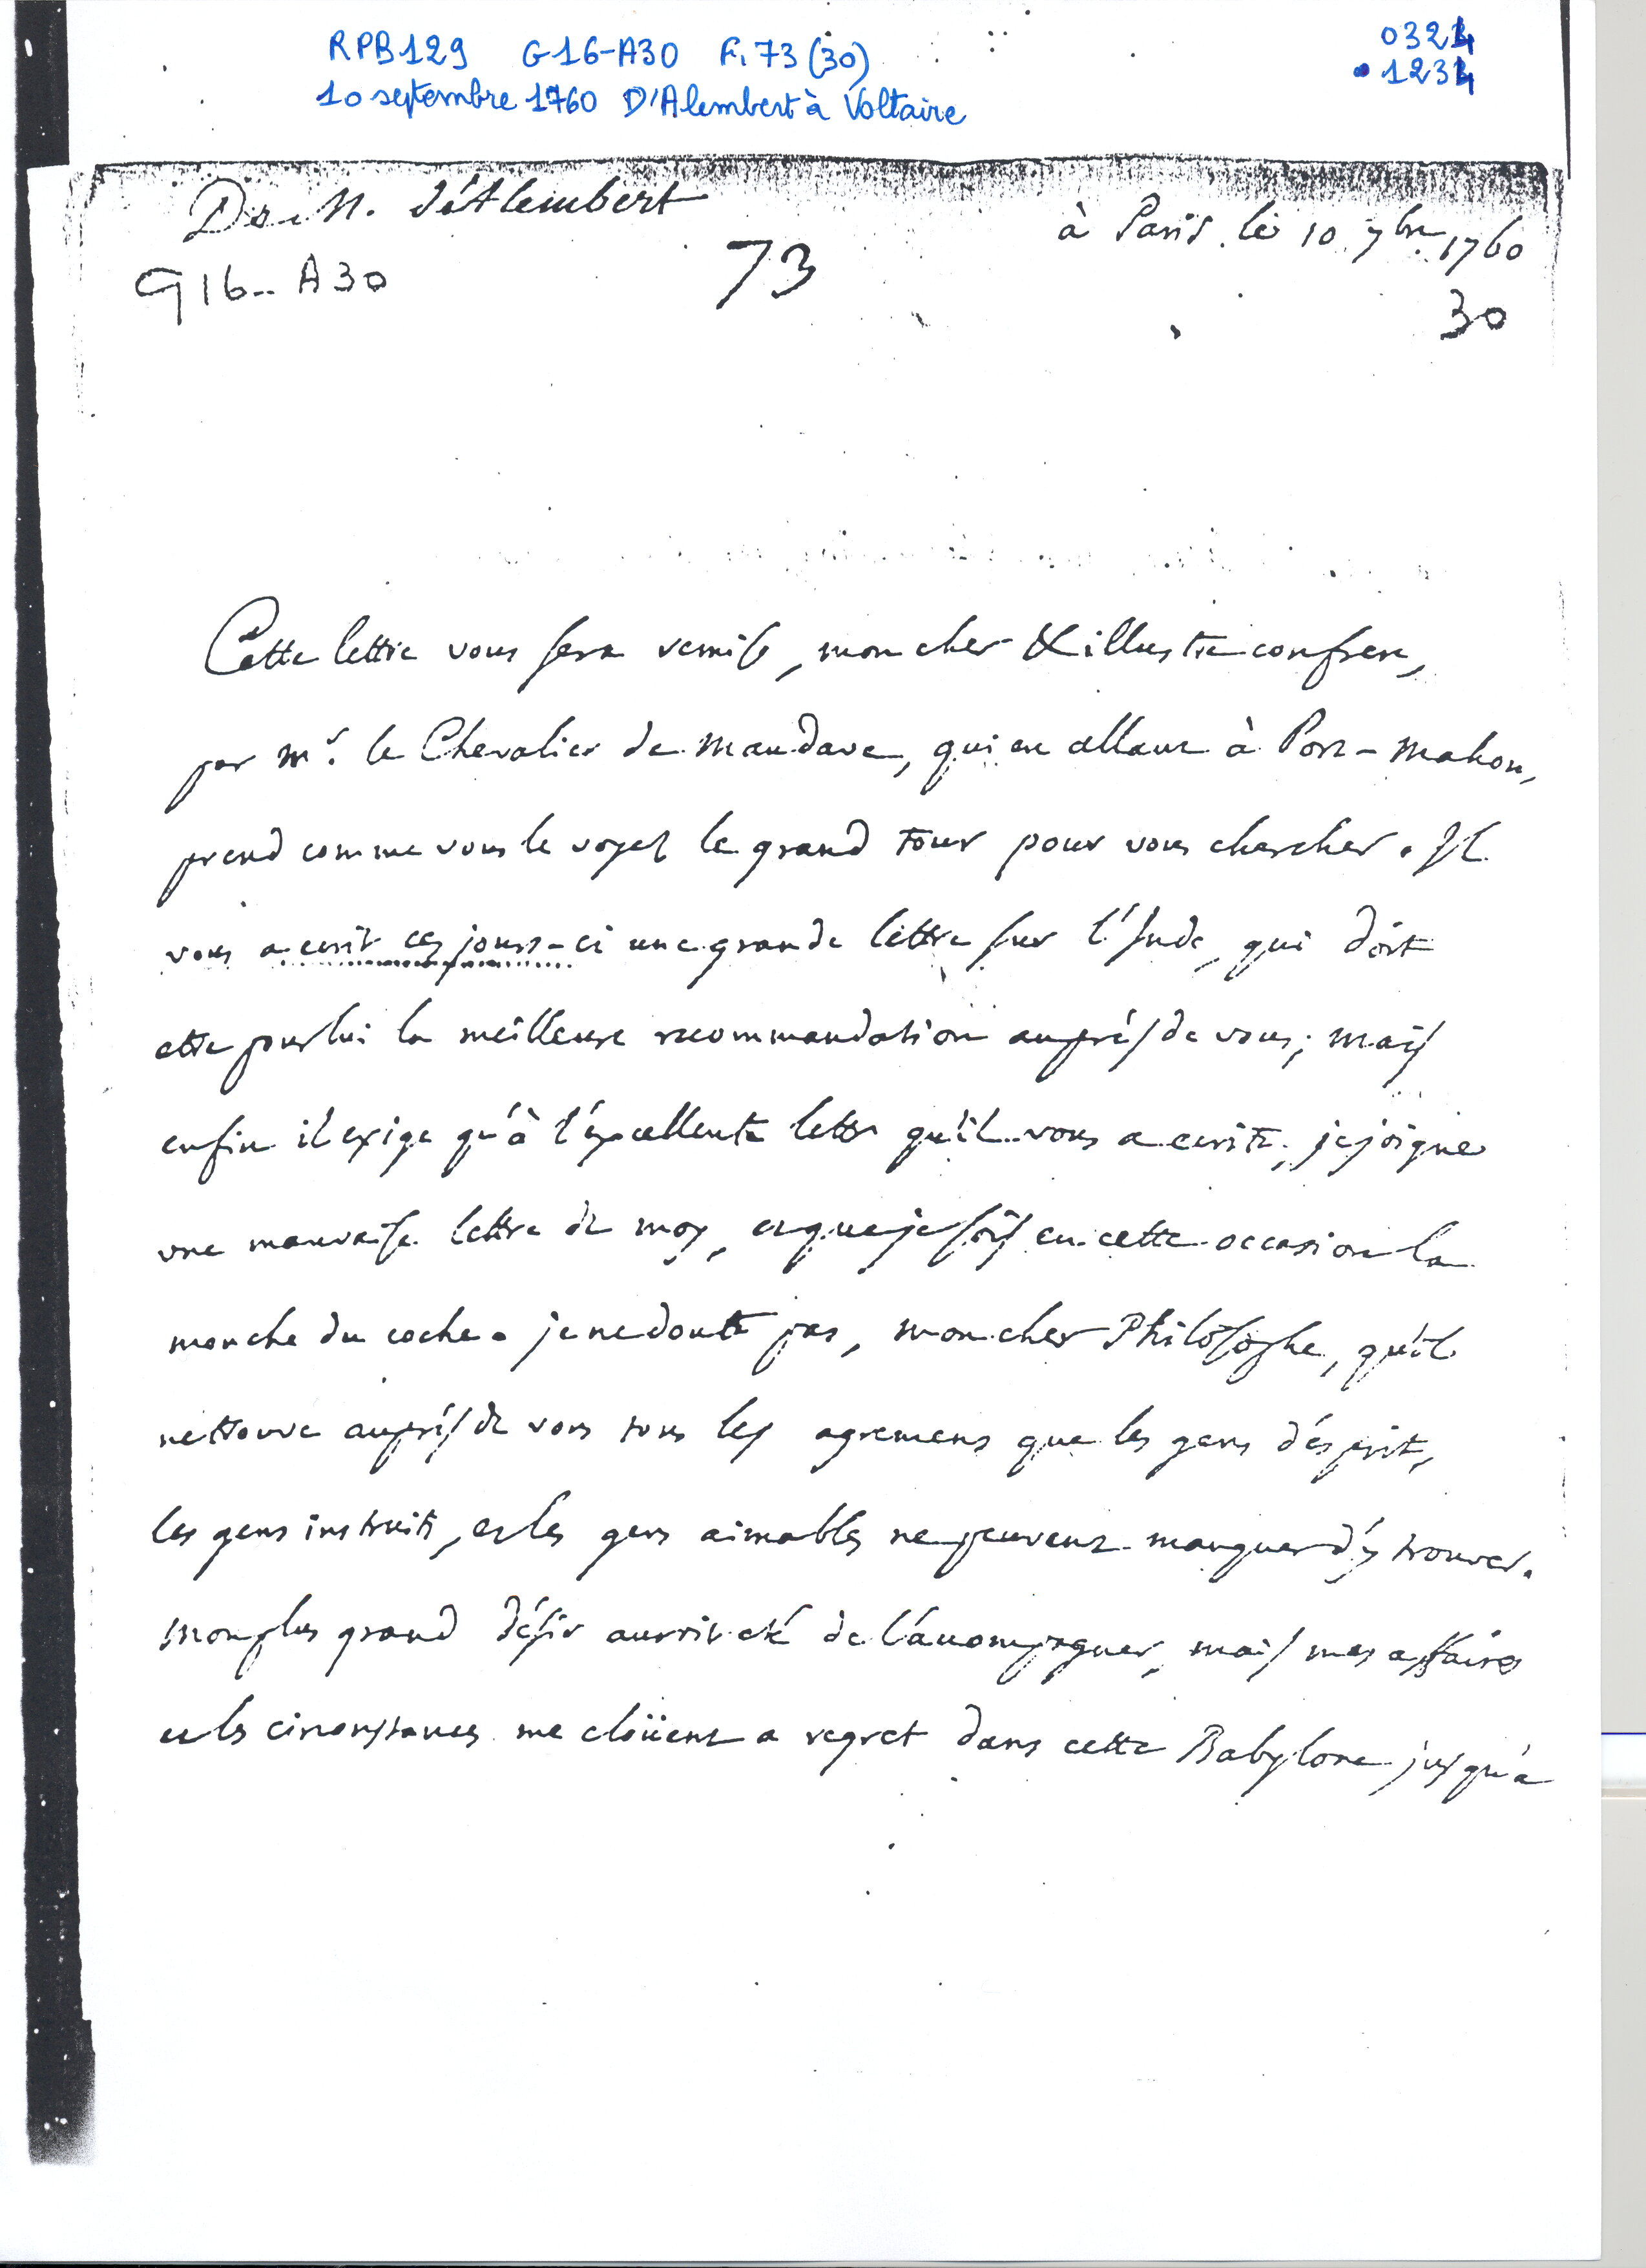 RPB129 G16-A30 F. 73 (30)
0324
1234
10 septembre 1760 D'Alembert à Voltaire
De M. d'Alembert
à Paris le 10 7bre 1760
G16-A30
73
30
Cette lettre vous sera remise, mon cher & illustre confrere,
par mr. le Chevalier de Maudave, qui en allant à Port-mahon,
prend comme vous le voyez le grand tour pour vous chercher. Il
vous a ecrit ces jours-ci une grande lettre sur l'Inde, qui doit
etre pour lui la meilleure recommandation auprès de vous; mais
enfin il exige qu'à l'éxcellente lettre qu'il vous a ecrite, je joigne
une mauvaise lettre de moy, et que je sois en cette occasion la
mouche du coche. je ne doute pas, mon cher Philosophe, qu'il
ne trouve auprès de vous tous les agremens que les gens d'ésprit,
les gens instruits, et les gens aimables ne peuvent manquer d'y trouver.
mon plus grand désir auroit eté de l'accompagner, mais mes affaires
et les circonstances me cloüent a regret dans cette Babylone jusqu'a